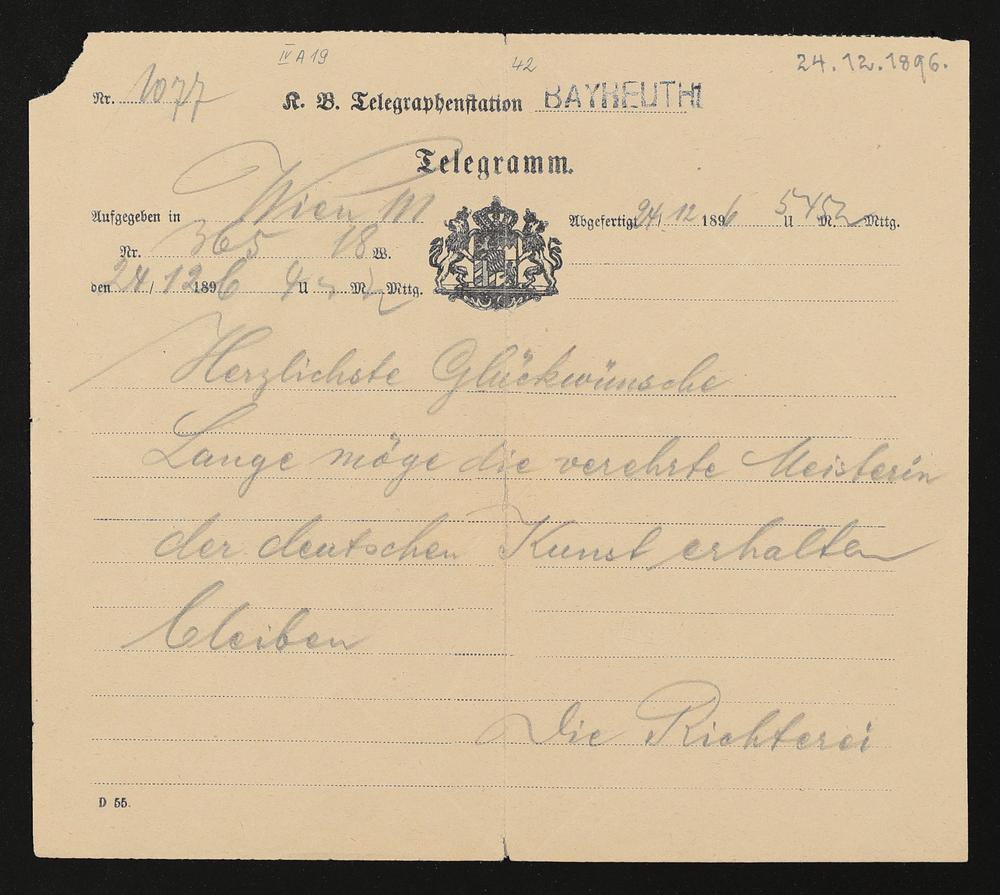 IV A 19
42
24.12.1896.
Nr. 1077
K. B. Telegraphenstation BAYREUTH
Telegramm.
Aufgegeben in Wien
Abgefertigt 24/12 1896 5 U 45 M. Mttg.
Nr. 365 18 W.
den 24/12 1896 4 U M. Mttg.
Herzlichste Glückwünsche
Lange möge die verehrte Meisterin
der deutschen Kunst erhalten
bleiben
Die Richterei
D 55.